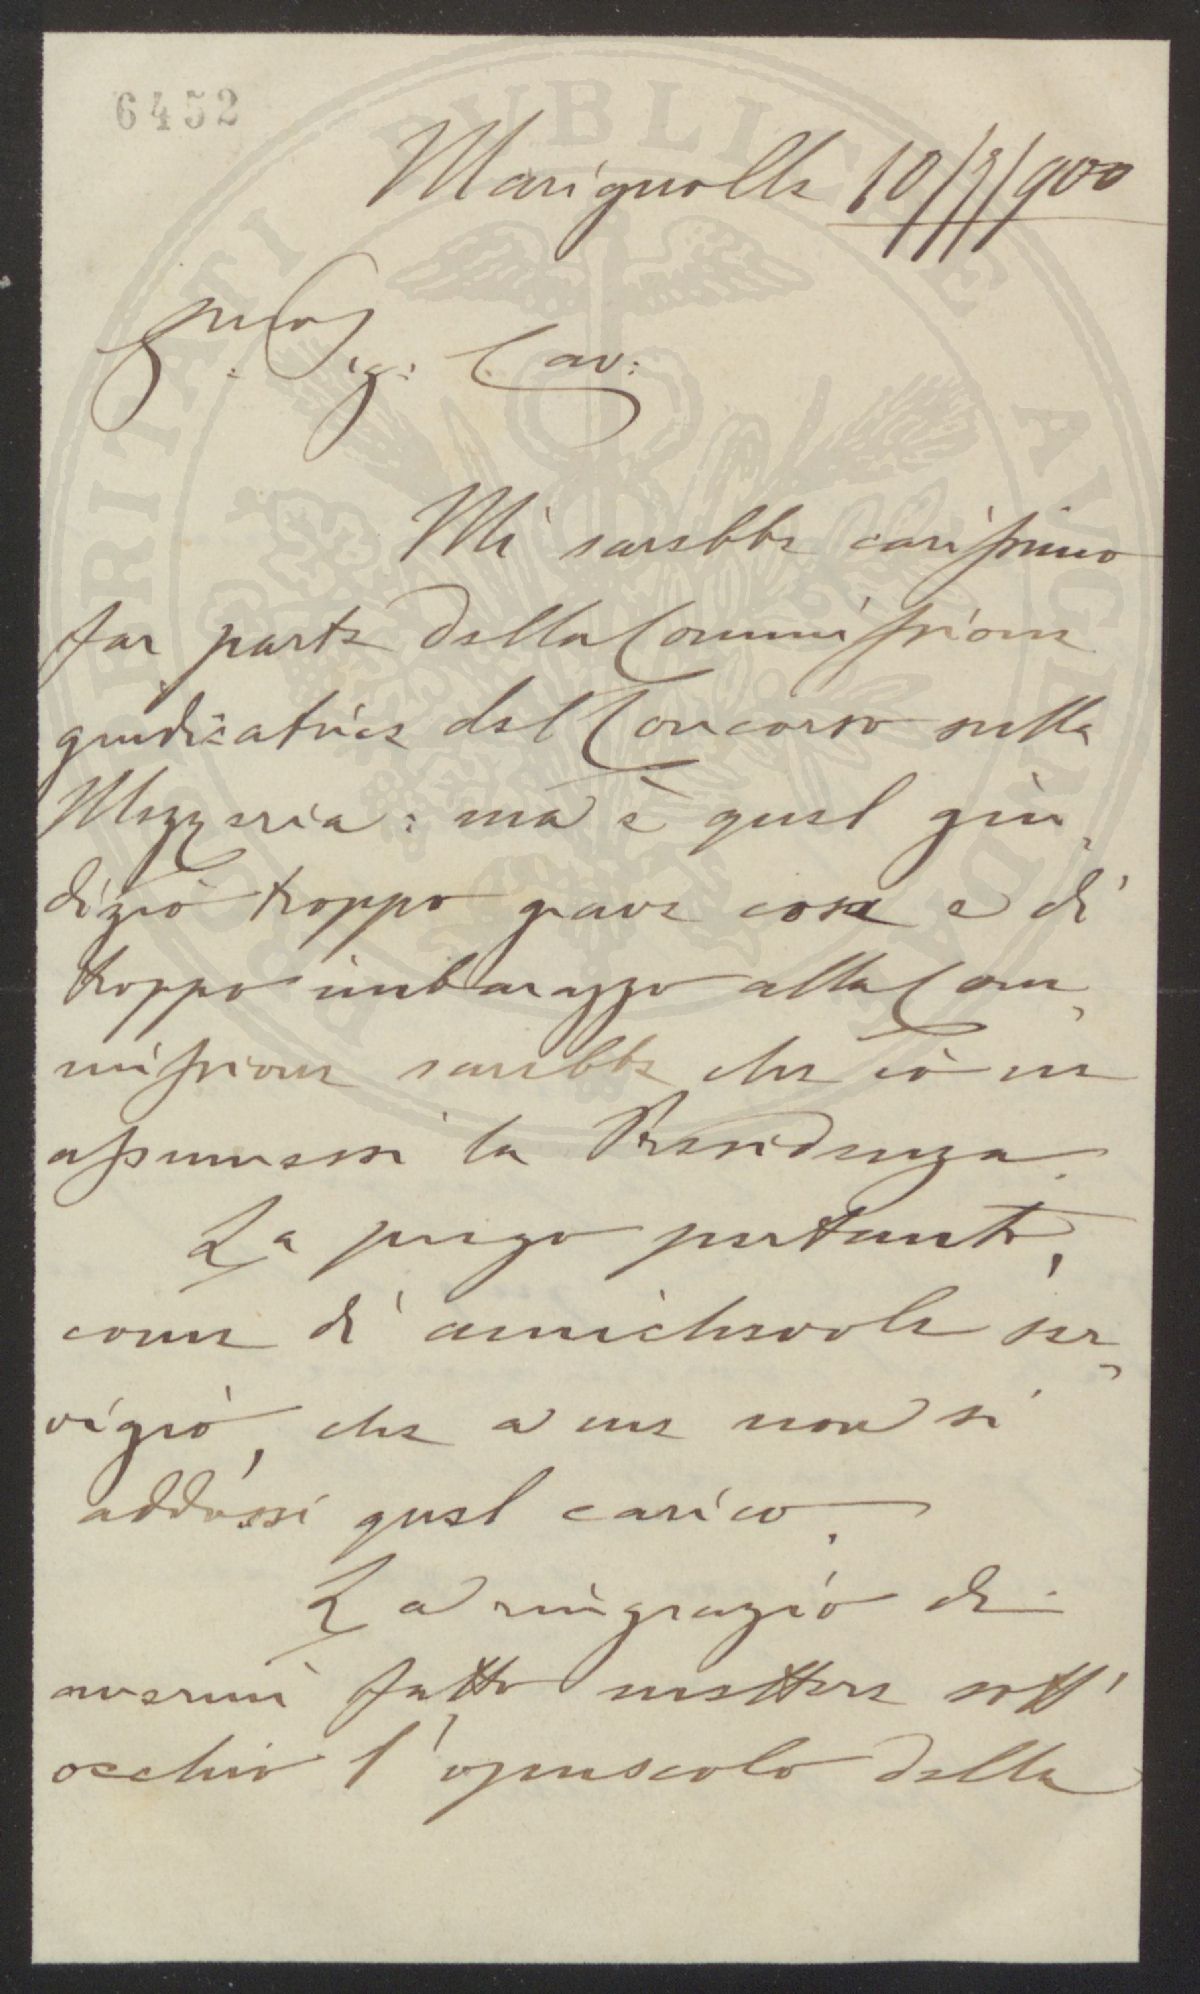 6452
PROSPERITATI PUBLICAE AUGENDAE
Marignolle 10/9/900
Sig: Cav:
Mi sarebbe carissimo
far parte della Commissione
giudicatrice del Concorso sulla
Mezzeria: ma è quel giu-
dizio troppo grave cosa e di
troppo imbarazzo alla Com-
missione sarebbe che io ne
assumessi la Presidenza.
La prego pertanto,
come di amichevole ser-
vigio, che a me non si
addossi quel carico.
La ringrazio di
avermi fatto mettere sott'
occhio l'opuscolo della